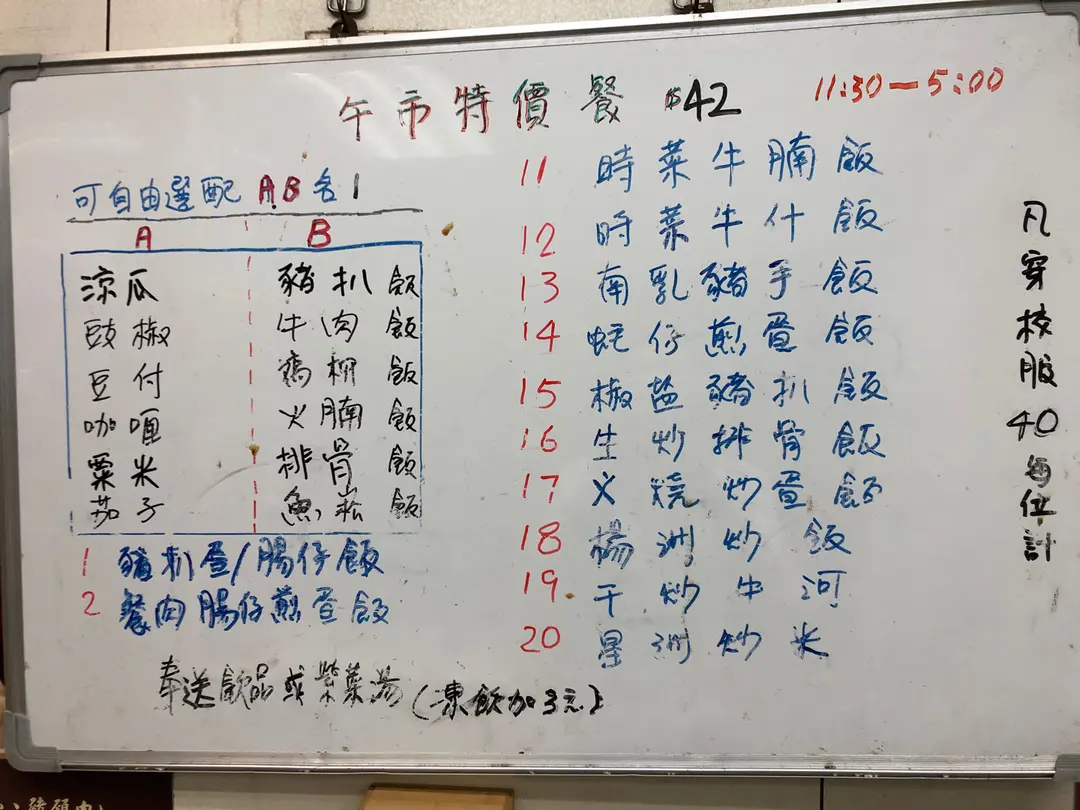 午市特價餐 $42
11:30—5:00
可自由選配 AB各1
A B
涼瓜 豬扒飯
豉椒 牛肉飯
豆付 鷄柳飯
咖喱 火腩飯
粟米 排骨飯
茄子 魚崧飯
1 豬扒蛋/腸仔飯
2 餐肉腸仔煎蛋飯
11 時菜牛腩飯
12 時菜牛什飯
13 南乳豬手飯
14 蚝仔煎蛋飯
15 椒盐豬扒飯
16 生炒排骨飯
17 义燒炒蛋飯
18 楊洲炒飯
19 干炒牛河
20 星洲炒米
凡穿校服40每位計
奉送飲品或紫菜湯(凍飲加3元)